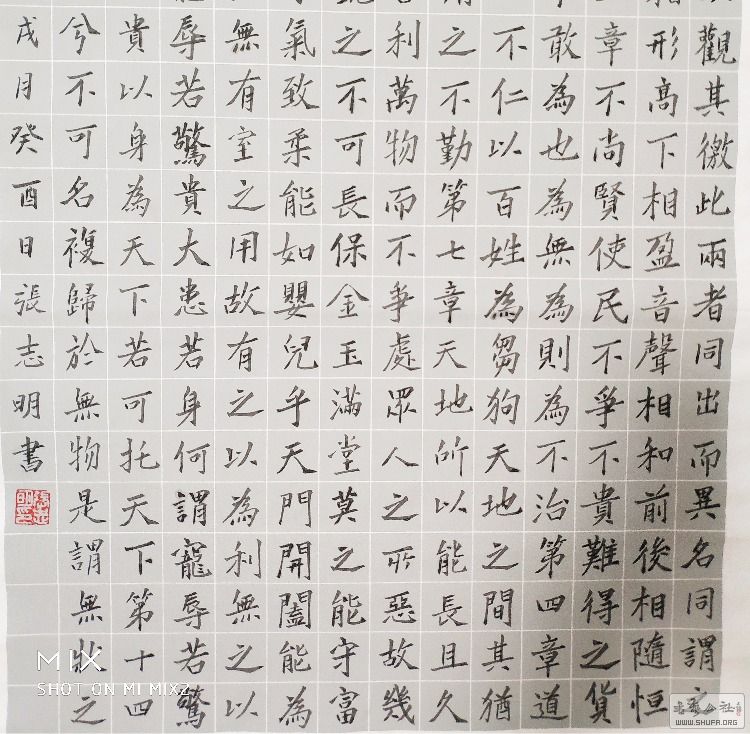 觀其徼此兩者同出而異名同謂之
形高下相盈音聲相和前後相隨恒
章不尚賢使民不爭不貴難得之貨
敢為也為無為則為不治第四章道
不仁以百姓為芻狗天地之間其猶
之不勤第七章天地所以能長且久
利萬物而不爭處眾人之所惡故幾
之不可長保金玉滿堂莫之能守富
氣致柔能如嬰兒乎天門開闔能為
無有室之用故有之以為利無之以
辱若驚貴大患若身何謂寵辱若驚
貴以身為天下若可托天下第十四
兮不可名複歸於無物是謂無狀之
戌月癸酉日張志明書
MIX
SHOT ON MI MIX2
WWW.SHUFA.ORG